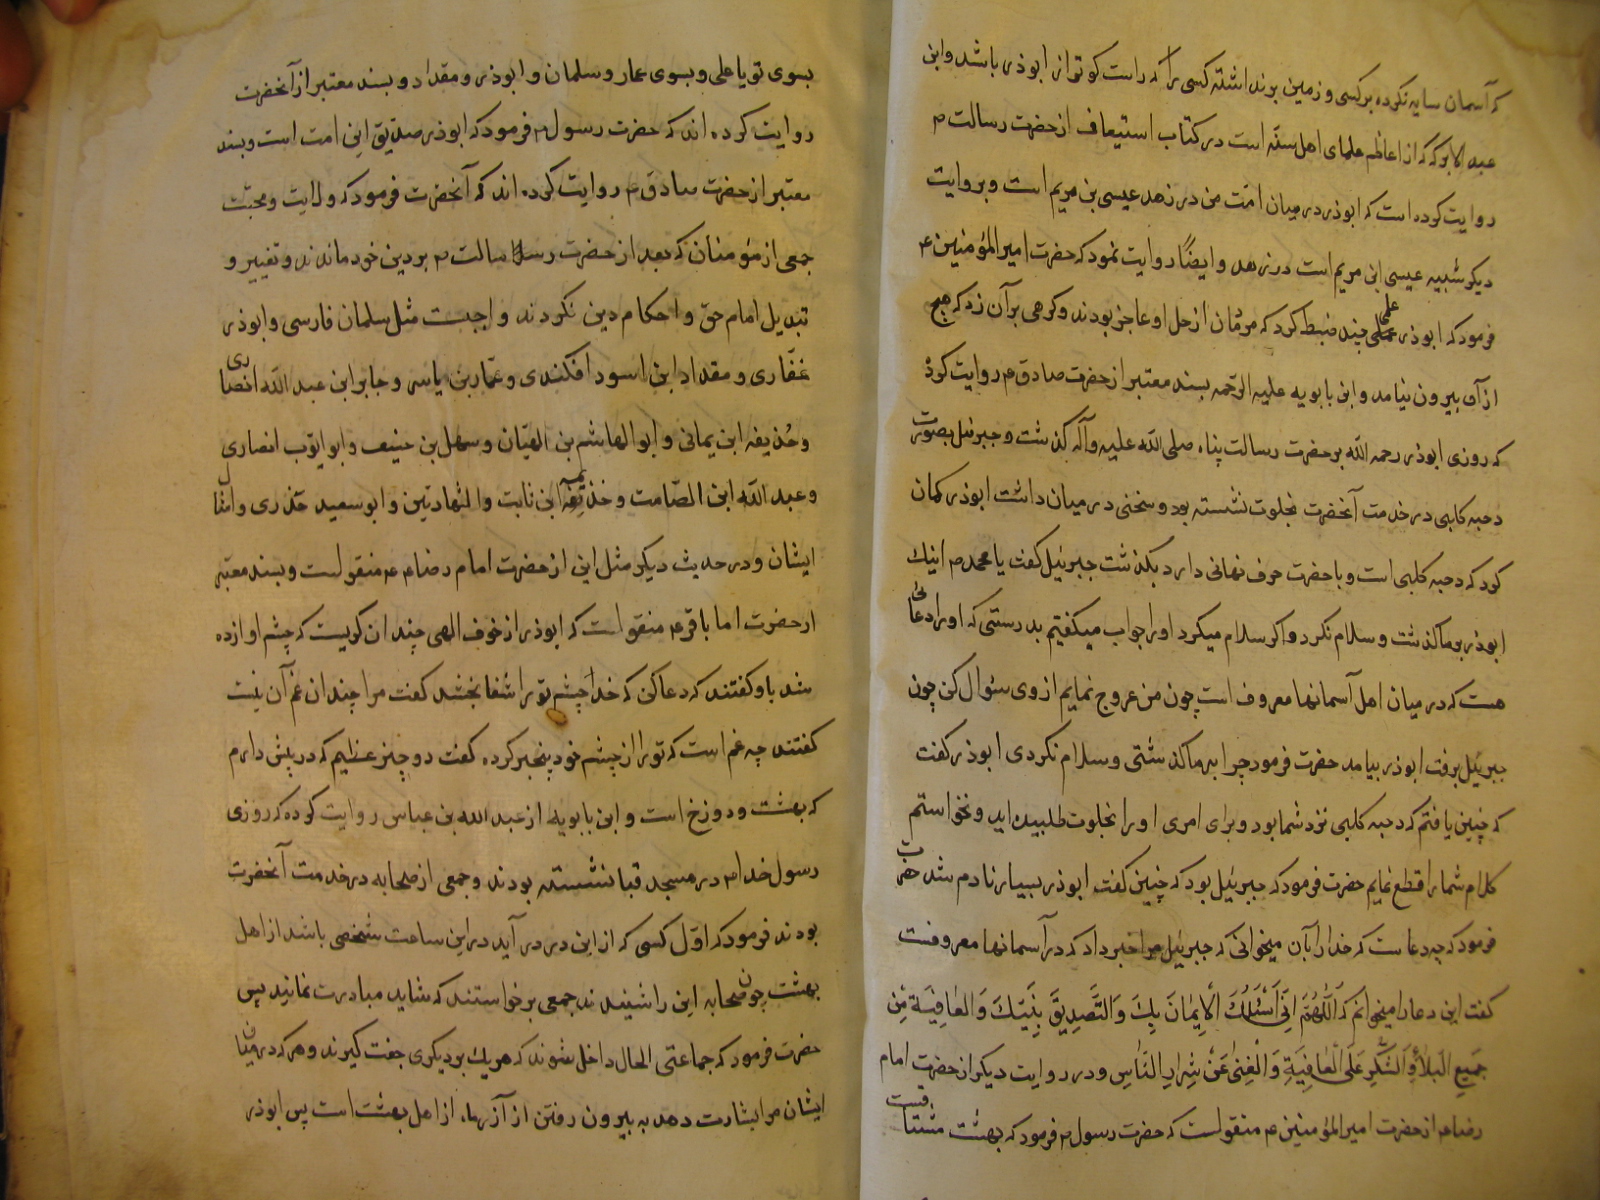 که آسمان سایه نکرده بر کسی و زمین برنداشته کسی را که راست کوتر از ابوذر باشد و ابن
عبد البر که که از اعاظم علمای اهل سنّه است در کتاب استیعاف از حضرت رسالت م
روایت کرده است که ابوذر در میان امّت من در زهد عیسی بن مریم است و بروایت
دیکر شبیه عیسی ابن مریم است در زهد و ایضًا روایت نمود که حضرت امیر المؤمنین ع
فرمود که ابوذر علمی چند ضبط کرد که مردمان از حمل او عاجز بودند و کرهی بر آن زد که هیچ
از آن بیرون نیامد و ابن بابویه علیه الرحمه بسند معتبر از حضرت صادق ع روایت کرده
که روزی ابوذر رحمه الله بر حضرت رسالت پناه صلی الله علیه و آله کذشت و جبرئیل بصورت
دحیه کلبی در خدمت آنحضرت بخلوت نشسته بود و سخنی در میان داشت ابوذر کمان
کرد که دحیه کلبی است و با حضرت حرف نهانی دارد بکذشت جبرئیل کفت یا محمد م اینک
ابوذر بر ما کذشت و سلام نکرد و اکر سلام میکرد او را جواب میکفتیم بدرستی که او را دعائی
هست که در میان اهل آسمانها معروف است چون من عروج نمایم از وی سئوال کن چون
جبرئیل برفت ابوذر بیامد حضرت فرمود چرا بر ما کذشتی و سلام نکردی ابوذر کفت
که چنین یافتم که دحیه کلبی نزد شما بود و برای امری او را بخلوت طلبیده اید و نخواستم
کلام شما را قطع نمایم حضرت فرمود که جبرئیل بود که چنین کفت ابوذر بسیار نادم شد حضرت
فرمود که چه دعاست که خدا را بآن میخوانی که جبرئیل مرا خبر داد که در آسمانها معروفست
کفت این دعا را میخوانم که اَللّٰهُمَّ اِنّی اَسْئَلُكَ الْاِیمٰانَ بِكَ وَ التَّصدِیقَ بِنَبِیّكَ وَ العٰافِیَةَ مِن
جَمیعِ البَلاٰءِ وَ الشُّکْرِ عَلَی الْعٰافِیَةِ وَ الْغِنیٰ عَنْ شِرٰارِ النّٰاسِ و در روایت دیکر از حضرت امام
رضا ع از حضرت امیر المؤمنین ع منقولست که حضرت رسول م فرمود که بهشت مشتاقست
بسوی تو یا علی و بسوی عمار و سلمان و ابوذر و مقداد و بسند معتبر از آنحضرت
روایت کرده اند که حضرت رسول م فرمود که ابوذر صدّیق این امت است و بسند
معتبر از حضرت صادق ع روایت کرده اند که آنحضرت فرمود که ولایت و محبّت
جمعی از مؤمنان که بعد از حضرت رسالت م بر دین خود ماندند و تغییر و
تبدیل امام حقّ و احکام دین نکردند واجبست مثل سلمان فارسی و ابوذر
غفّاری و مقداد ابن اسود افکندی و عمّار بن یاسر و جابر ابن عبد الله انصاری
و حُذیفه ابن یمانی و ابو الهاشم بن الهیّان و سهل بن حنیف و ابو ایّوب انصاری
و عبد الله ابن الصّامت و خذیمه ابن ثابت و الشهادتین و ابو سعید خذری و امثال
ایشان و در حدیث دیکر مثل این از حضرت امام رضا ع منقولست و بسند معتبر
از حضرت اما باقر ع منقولست که ابوذر از خوف الهی چندان کریست که چشم او ازده
شد باو کفتند که دعا کن که خدا چشم تو را شفا بخشد کفت مرا چندان غم آن نیست
کفتند چه غم است که تو را از چشم خود بیخبر کرده کفت دو چیز عظیم که در پیش دارم
که بهشت و دوزخ است و ابن بابویه از عبد الله بن عباس روایت کرده که روزی
رسول خدا م در مسجد قبا نشسته بودند و جمعی از صحابه در خدمت آنحضرت
بودند فرمود که اوّل کسی که از این در در آید در این ساعت شخصی باشد از اهل
بهشت چون صحابه این را شنیدند جمعی برخواستند که شاید مبادرت نمایند پس
حضرت فرمود که جماعتی الحال داخل شوند که هریك بر دیکری جفت کیرند و هر که در میان
ایشان مرا بشارت دهد به بیرون رفتن از آزر ماه، از اهل بهشت است پس ابوذر